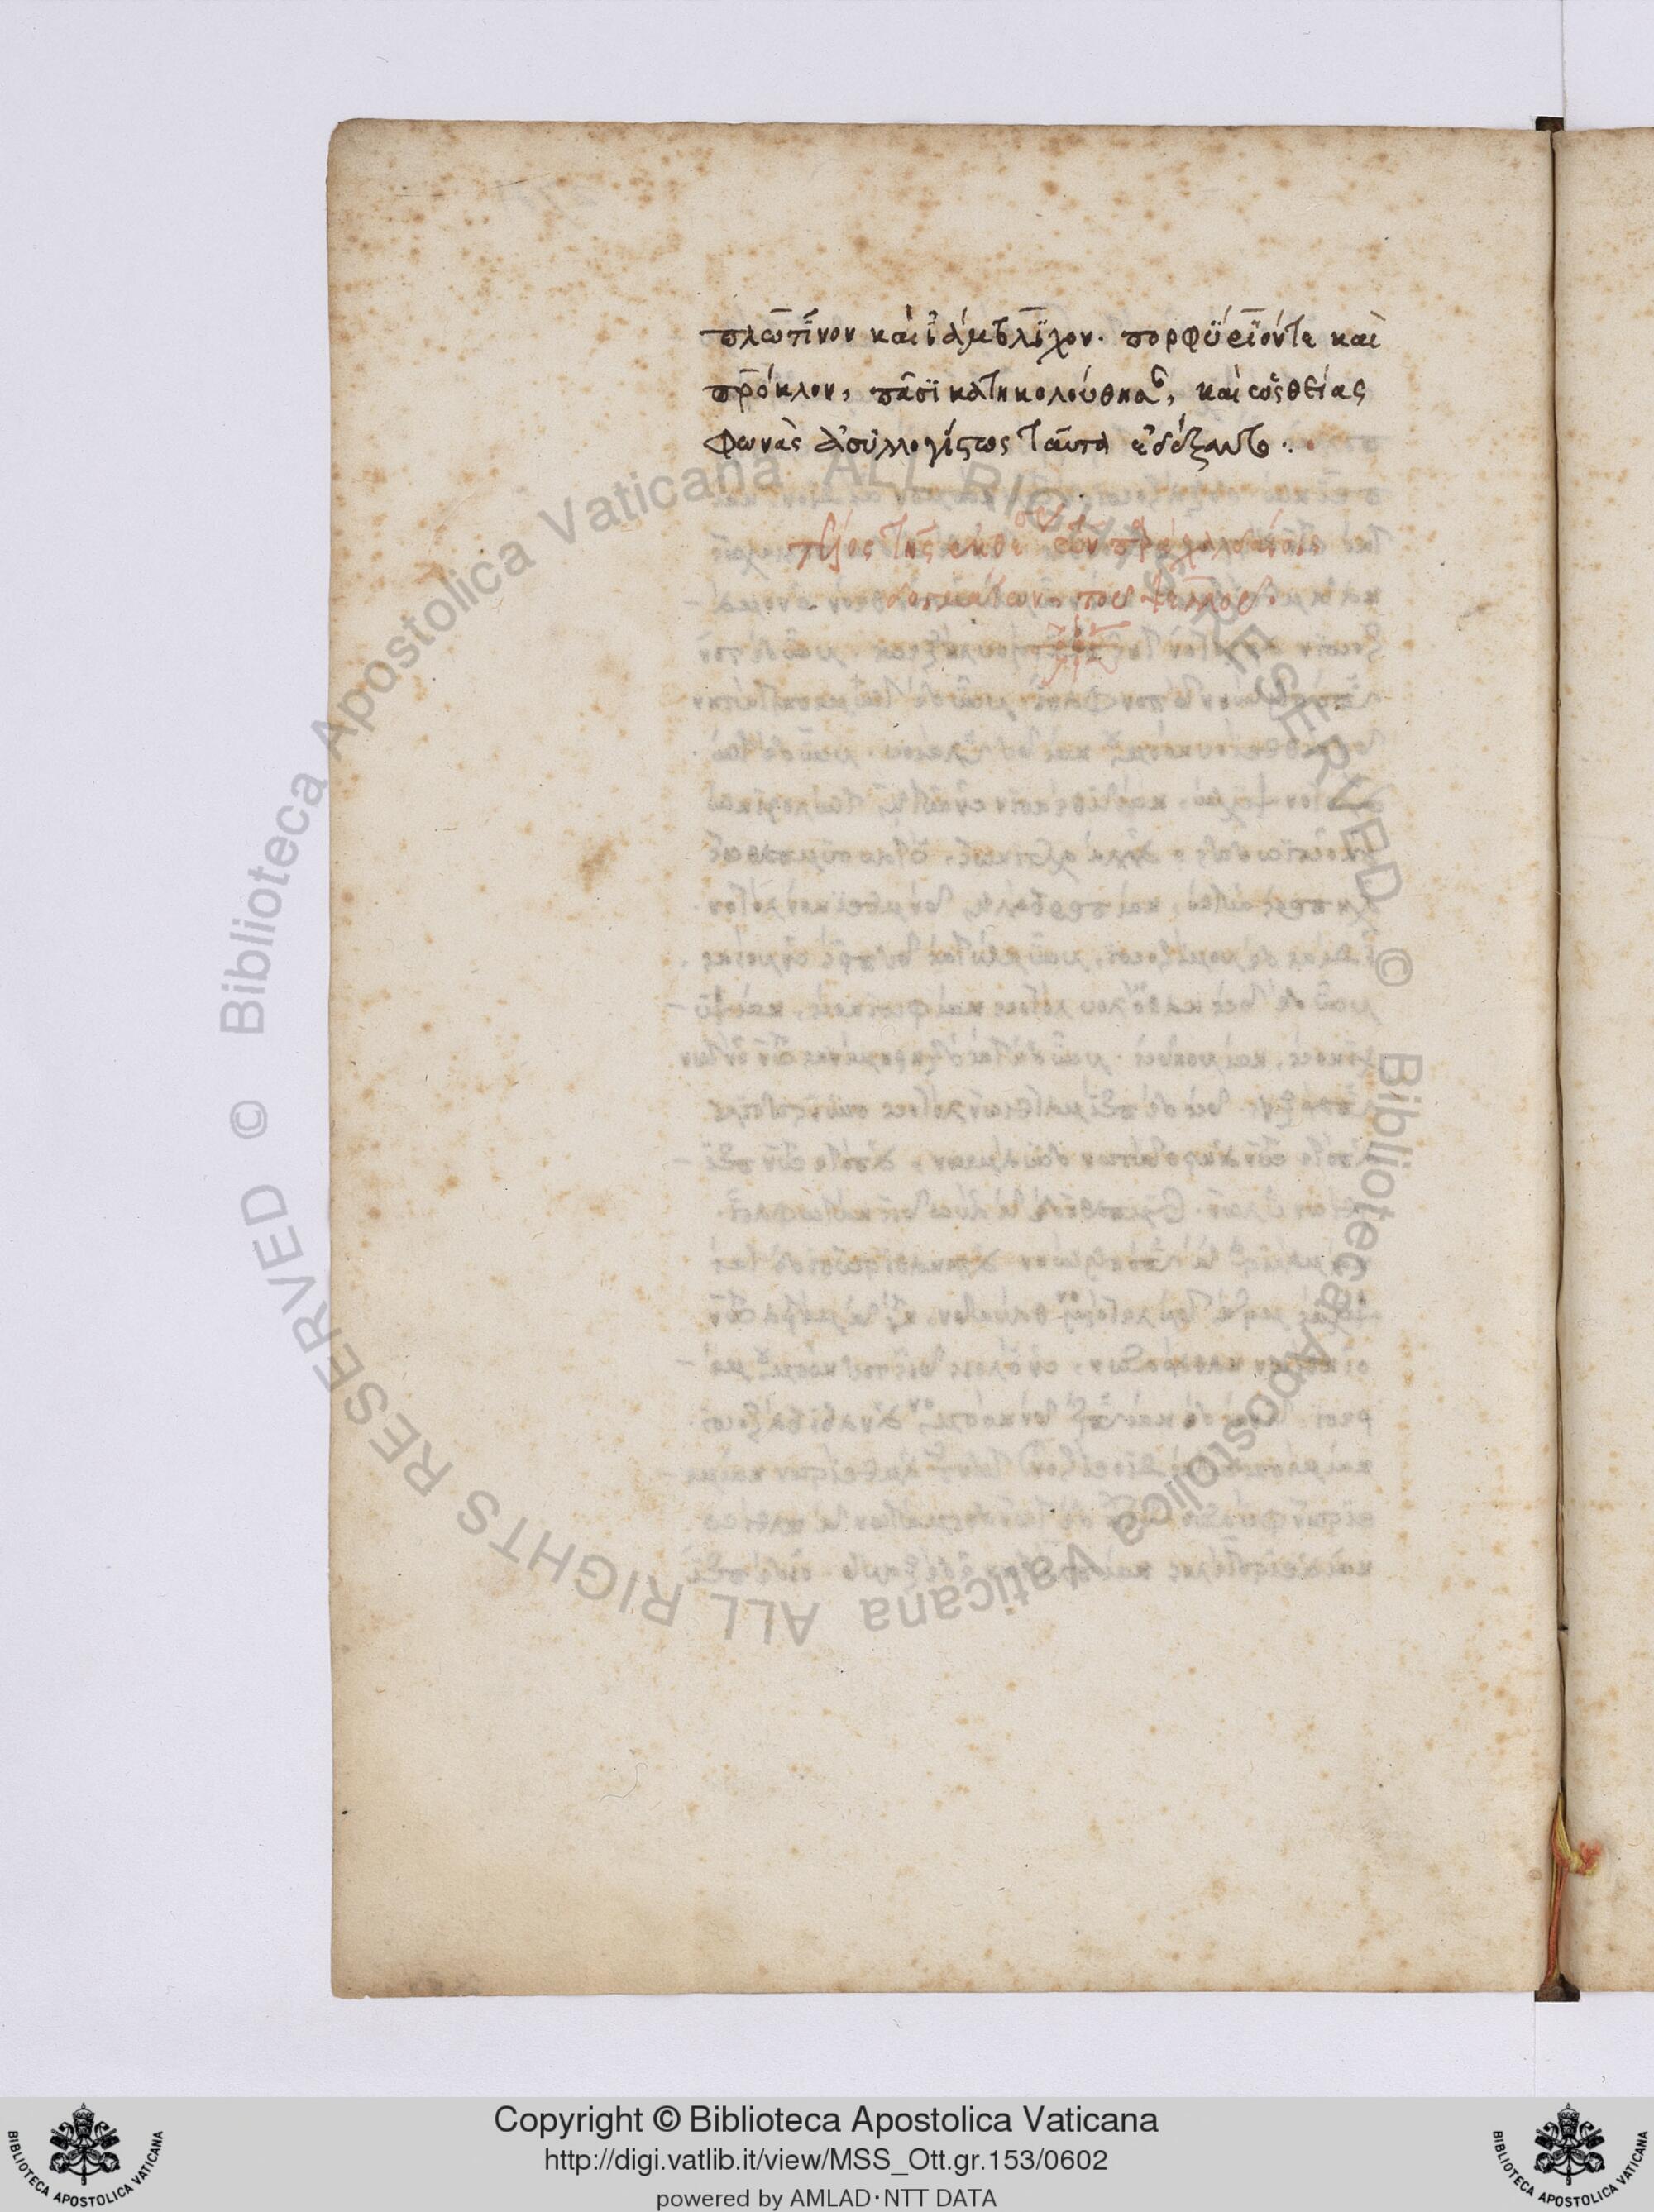 πλωτῖνον καὶ ἰάμβλϊχον. πορφύριόντε καὶ
πρόκλον, πᾶσϊ κατηκολούθησ, καὶ ὡς θείας
φωνὰς ἀσυλλογίστως ταῦτα ἐδέξαντο.
τέλος τῆς ἐκθέσεως τῶν παρὰ χαλδαίοις
δογμάτων, τοῦ ψελλοῦ.
© Biblioteca Apostolica Vaticana ALL RIGHTS RESERVED
© Biblioteca Apostolica Vaticana ALL RIGHTS RESERVED
Copyright © Biblioteca Apostolica Vaticana
http://digi.vatlib.it/view/MSS_Ott.gr.153/0602
powered by AMLAD·NTT DATA
BIBLIOTECA APOSTOLICA VATICANA
BIBLIOTECA APOSTOLICA VATICANA